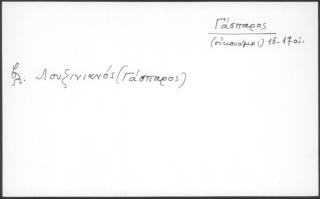 Γάσπαρος
(οἰκονόμος) 16-17 αἰ.
βλ. Λουζινιανός (Γάσπαρος)